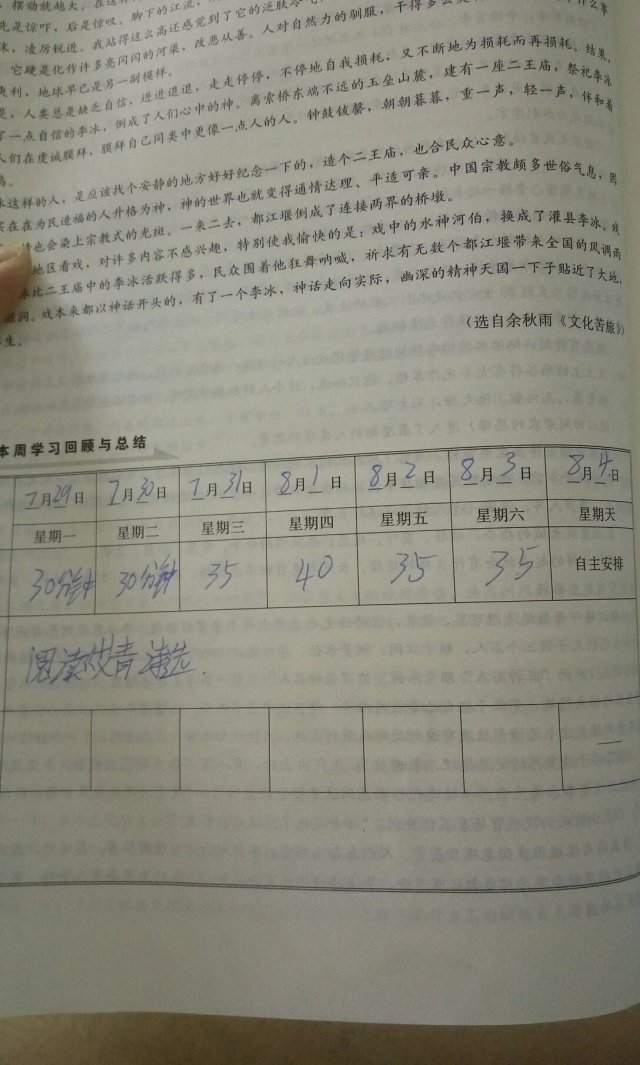 摆动就越大。在这种
先是惊吓，后是惊叹。脚下的江流，
沫，凌厉锐进。我站得这么高还感觉到了它的
它硬是化作许多亮闪闪的河渠，改恶从善。人对自然力的驯服，干得多么
爽利，地球早已是另一副模样。
是，人类总是缺乏自信，进进退退，走走停停，不停地自我损耗，又不断地为损耗而再损耗。结果，
了一点自信的李冰，倒成了人们心中的神。离索桥东端不远的玉垒山麓，建有一座二王庙，祭祀李冰
人们在虔诚膜拜，膜拜自己同类中更像一点人的人。钟鼓钹磬，朝朝暮暮，重一声，轻一声，伴和着
冰这样的人，是应该找个安静的地方好好纪念一下的，造个二王庙，也合民众心意。
实在在为民造福的人升格为神，神的世界也就变得通情达理、平适可亲。中国宗教颇多世俗气息，因
也会染上宗教式的光斑。一来二去，都江堰倒成了连接两界的桥墩。
地区看戏，对许多内容不感兴趣，特别使我愉快的是：戏中的水神河伯，换成了灌县李冰。戏
比二王庙中的李冰活跃得多，民众围着他狂舞呐喊，祈求有无数个都江堰带来全国的风调雨
润。戏本来都以神话开头的，有了一个李冰，神话走向实际，幽深的精神天国一下子贴近了大地，
生。
（选自余秋雨《文化苦旅》）
本周学习回顾与总结
7月29日 7月30日 7月31日 8月1日 8月2日 8月3日 8月4日
星期一 星期二 星期三 星期四 星期五 星期六 星期天
30分钟 30分钟 35 40 35 35 自主安排
阅读艾青诗选